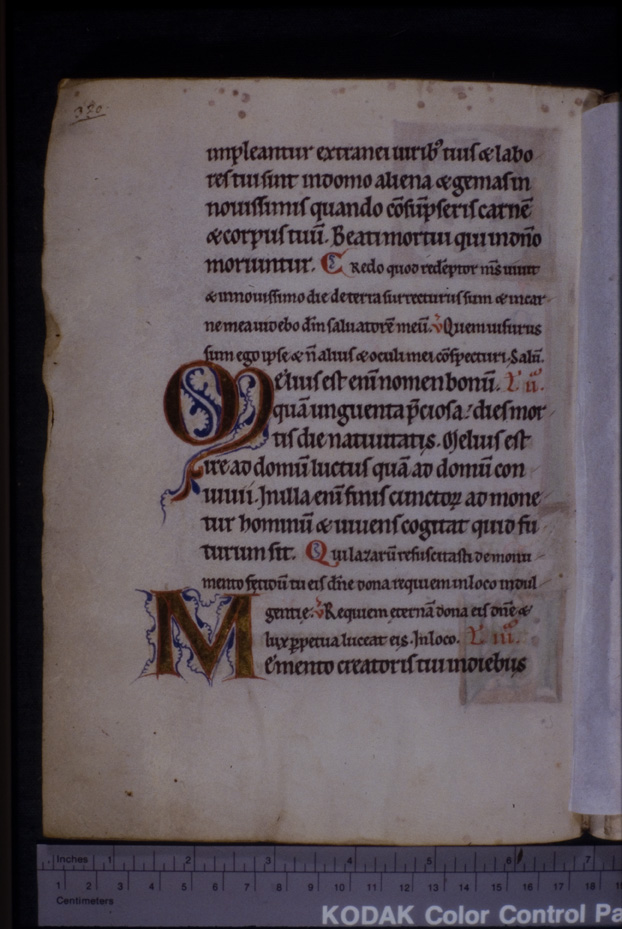 320.
impleantur extranei uirib' tuis & labo
res tui sint in domo aliena & gemas in
nouissimis quando cōsūpseris carnē
& corpus tuū. Beati mortui qui in dño
moriuntur. Credo quod redēptor ms̄ uiuit
& in nouissimo die de terra surrecturus sum & in car
ne mea uidebo dm̄ saluatorē meū. ℣ Quem uisurus
sum ego ipse & ñ alius & oculi mei cōspecturi. Salu.
Melius est enī nomen bonū. L' ii.
quā unguenta p̄ciosa: dies mor
tis die natiuitatis. Melius est
ire ad domū luctus quā ad domū con
uiuii. In illa enī finis cunctoꝝ ad mone
tur hominū & uiuens cogitat quid fu
turum sit. Qui lazarū resuscitasti de monu
mento fetidū tu eis dñe dona requiem in loco indul
gentie. ℣ Requiem eternā dona eis dñe &
lux ꝑpetua luceat eis. In loco. L' iii.
Memento creatoris tui in diebus
Inches 1 2 3 4 5 6 7
1 2 3 4 5 6 7 8 9 10 11 12 13 14 15 16 17 18
Centimeters
KODAK Color Control Pa